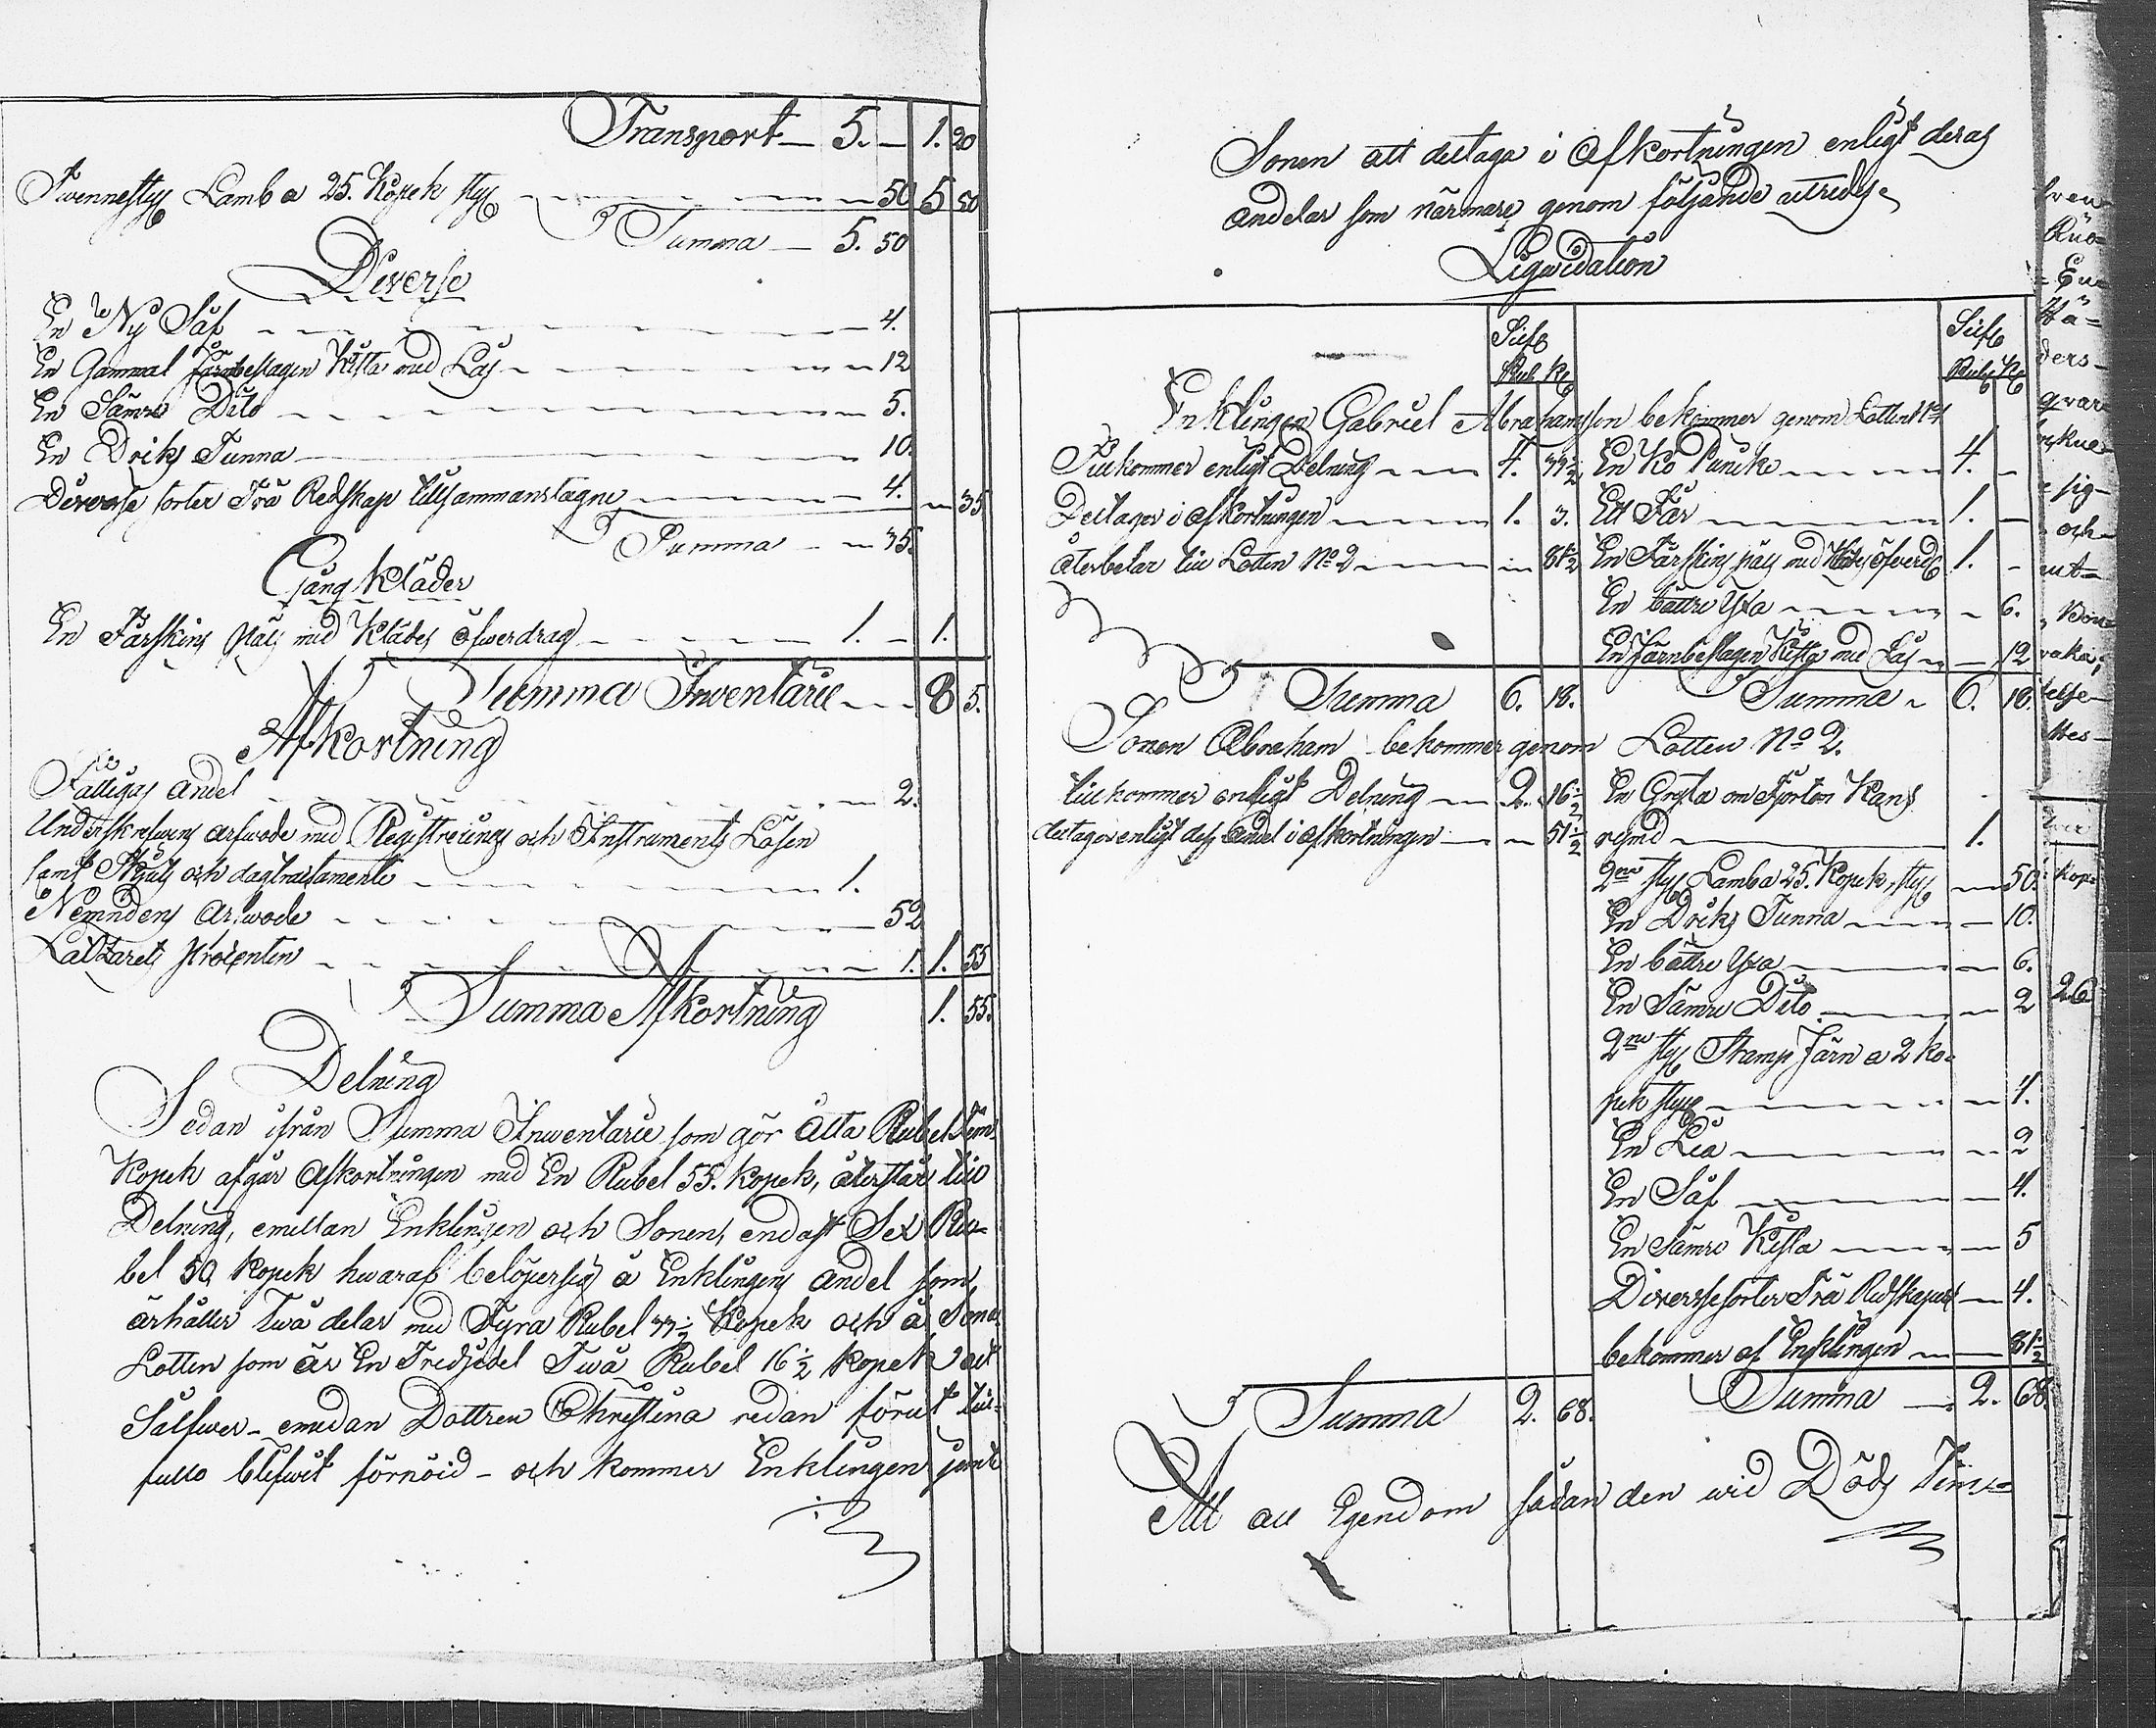 Transport — 5. — 1. 20
Twenne styc Lamb a 25. Kopek styc — 50 5 50
Summa — 5. 50
Diverse
En Ny Säf — 4.
En Gammal Järnbeslagen Kista med Lås — 12
En Sämre Dito — 5.
En Dricks Tunna — 10.
Diversse sorter Trä Redskap tillsammanstagne — 4. — 35
Summa — 35.
Gång Kläder
En Fårskins päls med Klädes öfwerdrag — 1. — 1.
Summa Inventarie — 8 5.
Afkortning
Fattigas andel — 2.
Underskrefwens arfwode med Registrerings och Instruments Lösen
samt Skjuts och dagtractamente — 1.
Nemndens arfwode — 52
Latzarets procenten — 1. 1. 55
Summa Afkortning 1. 55.
Delning
Sedan ifrån Summa Inwentarie som gör åtta Rubel Fem
Kopek afgår afkortningen med En Rubel 55. kopek, återstår till
Delning, emellan Enklingen och Sonen, endast Sex Ru-
bel 50 kopek hwaraf belöper sig å Enklingens andel som
ärhåller Twå delar med Fyra Rubel 33½ Kopek och å Sone
Lotten som är En Tredjedel Twå Rubel 16½ kopek alt
Silfwer – emedan Dottren Christina redan förut till-
fullo blifwit förnöid – och kommer Enklingen jemte
Sonen att deltaga i Afkortningen enligt deras
andelar som närmare genom följande utredes
Liqwidation
Silfr Silfr
Rub. K. Rub. K.
Enklingen Gabriel Abrahamsson bekommer genom Lotten N:o 1
Tillkommer enligt Delning — 4. 33½ En Ko Punicke — 4. —
Deltager i afkortningen — 1. 3. Ett Får — 1. —
återbetar till Lotten No 2 — 81½ En Fårskins päls med Klädes öfwerdr 1. —
En bättre Yxa — 6.
En Järnbeslagen Kista med Lås — 12
Summa 6. 18. Summa 6. 18.
Sonen Abraham bekommer genom Lotten No 2.
tillkommer enligt Delning — 2. 16½ En Gryta om Fjorton Kans
deltager enligt dess andel i afkortningen — 51½ rymd — 1.
2ne styc Lamb a 25. Kopek styc — 50.
En Dricks Tunna — 10.
En bättre Yxa — 6.
En Sämre Dito — 2
2ne styc Stamp Järn a 2 ko-
pek styc — 4.
En Lia — 2
En Säf — 4.
En Sämre Kista — 5
Diversse sorter Trä Redskaper — 4.
bekommer af Enklingen — 81½
Summa 2. 68. Summa — 2. 68.
Att all Egendom sådan den wid Döds Tim-